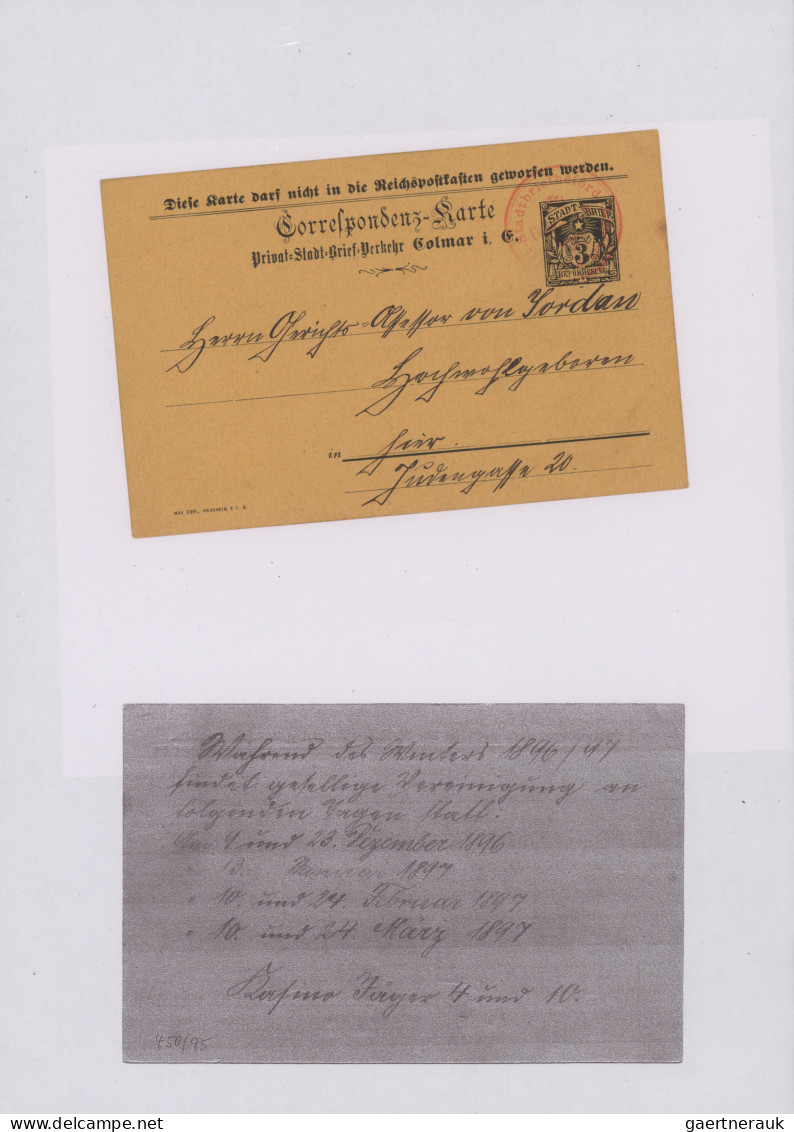 Diese Karte darf nicht in die Reichspostkasten geworfen werden.
Correspondenz-Karte
Privat-Stadt-Brief-Verkehr Colmar i. E.
Stadtbrief
STADT BRIEF
3
BEFÖRDERUNG
Herrn Gerichts-Assessor von Jordan
Hochwohlgeboren
in hier.
Judengasse 20.
Während des Winters 1896/97
findet gesellige Vereinigung an
folgenden Tagen statt:
Am 9 und 23. Dezember 1896
" 13. Januar 1897
" 10. und 24. Februar 1897
" 10. und 24. März 1897
Kasino Jäger 4 und 10.
450/95
delcampe.net
gaertnerauk